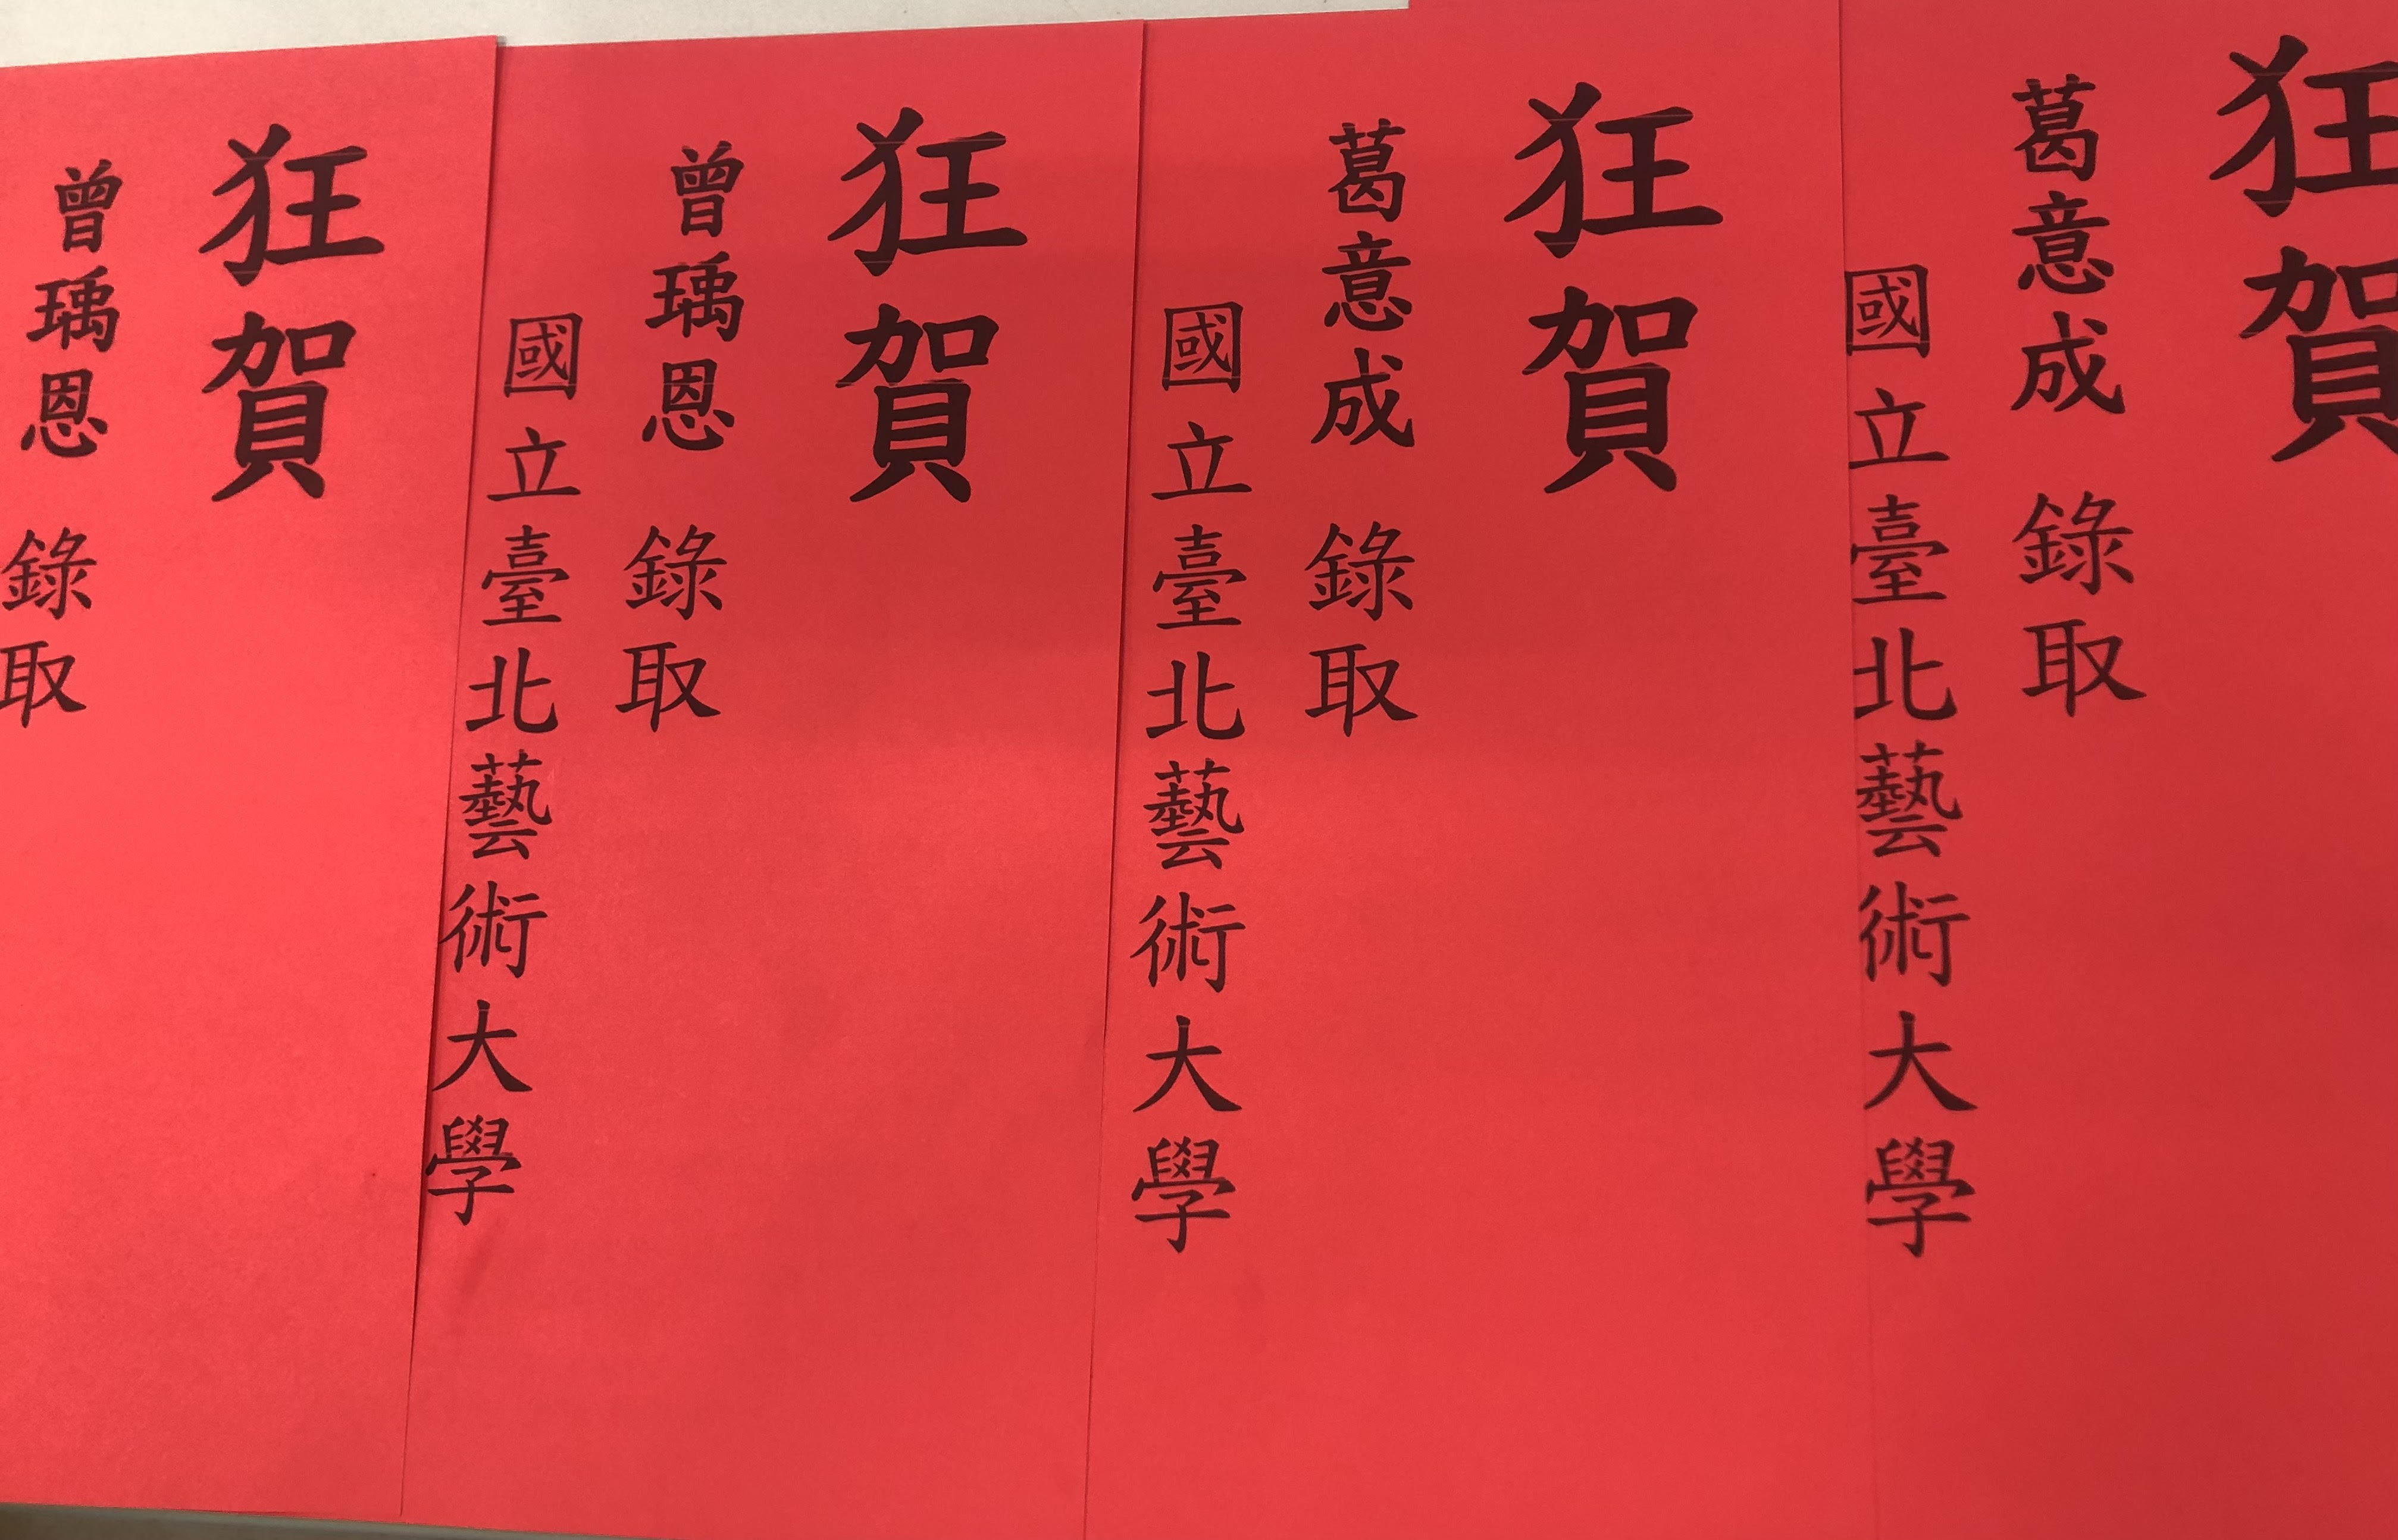 狂賀
葛意成 錄取
國立臺北藝術大學
狂賀
葛意成 錄取
國立臺北藝術大學
狂賀
曾瑀恩 錄取
國立臺北藝術大學
狂賀
曾瑀恩 錄取